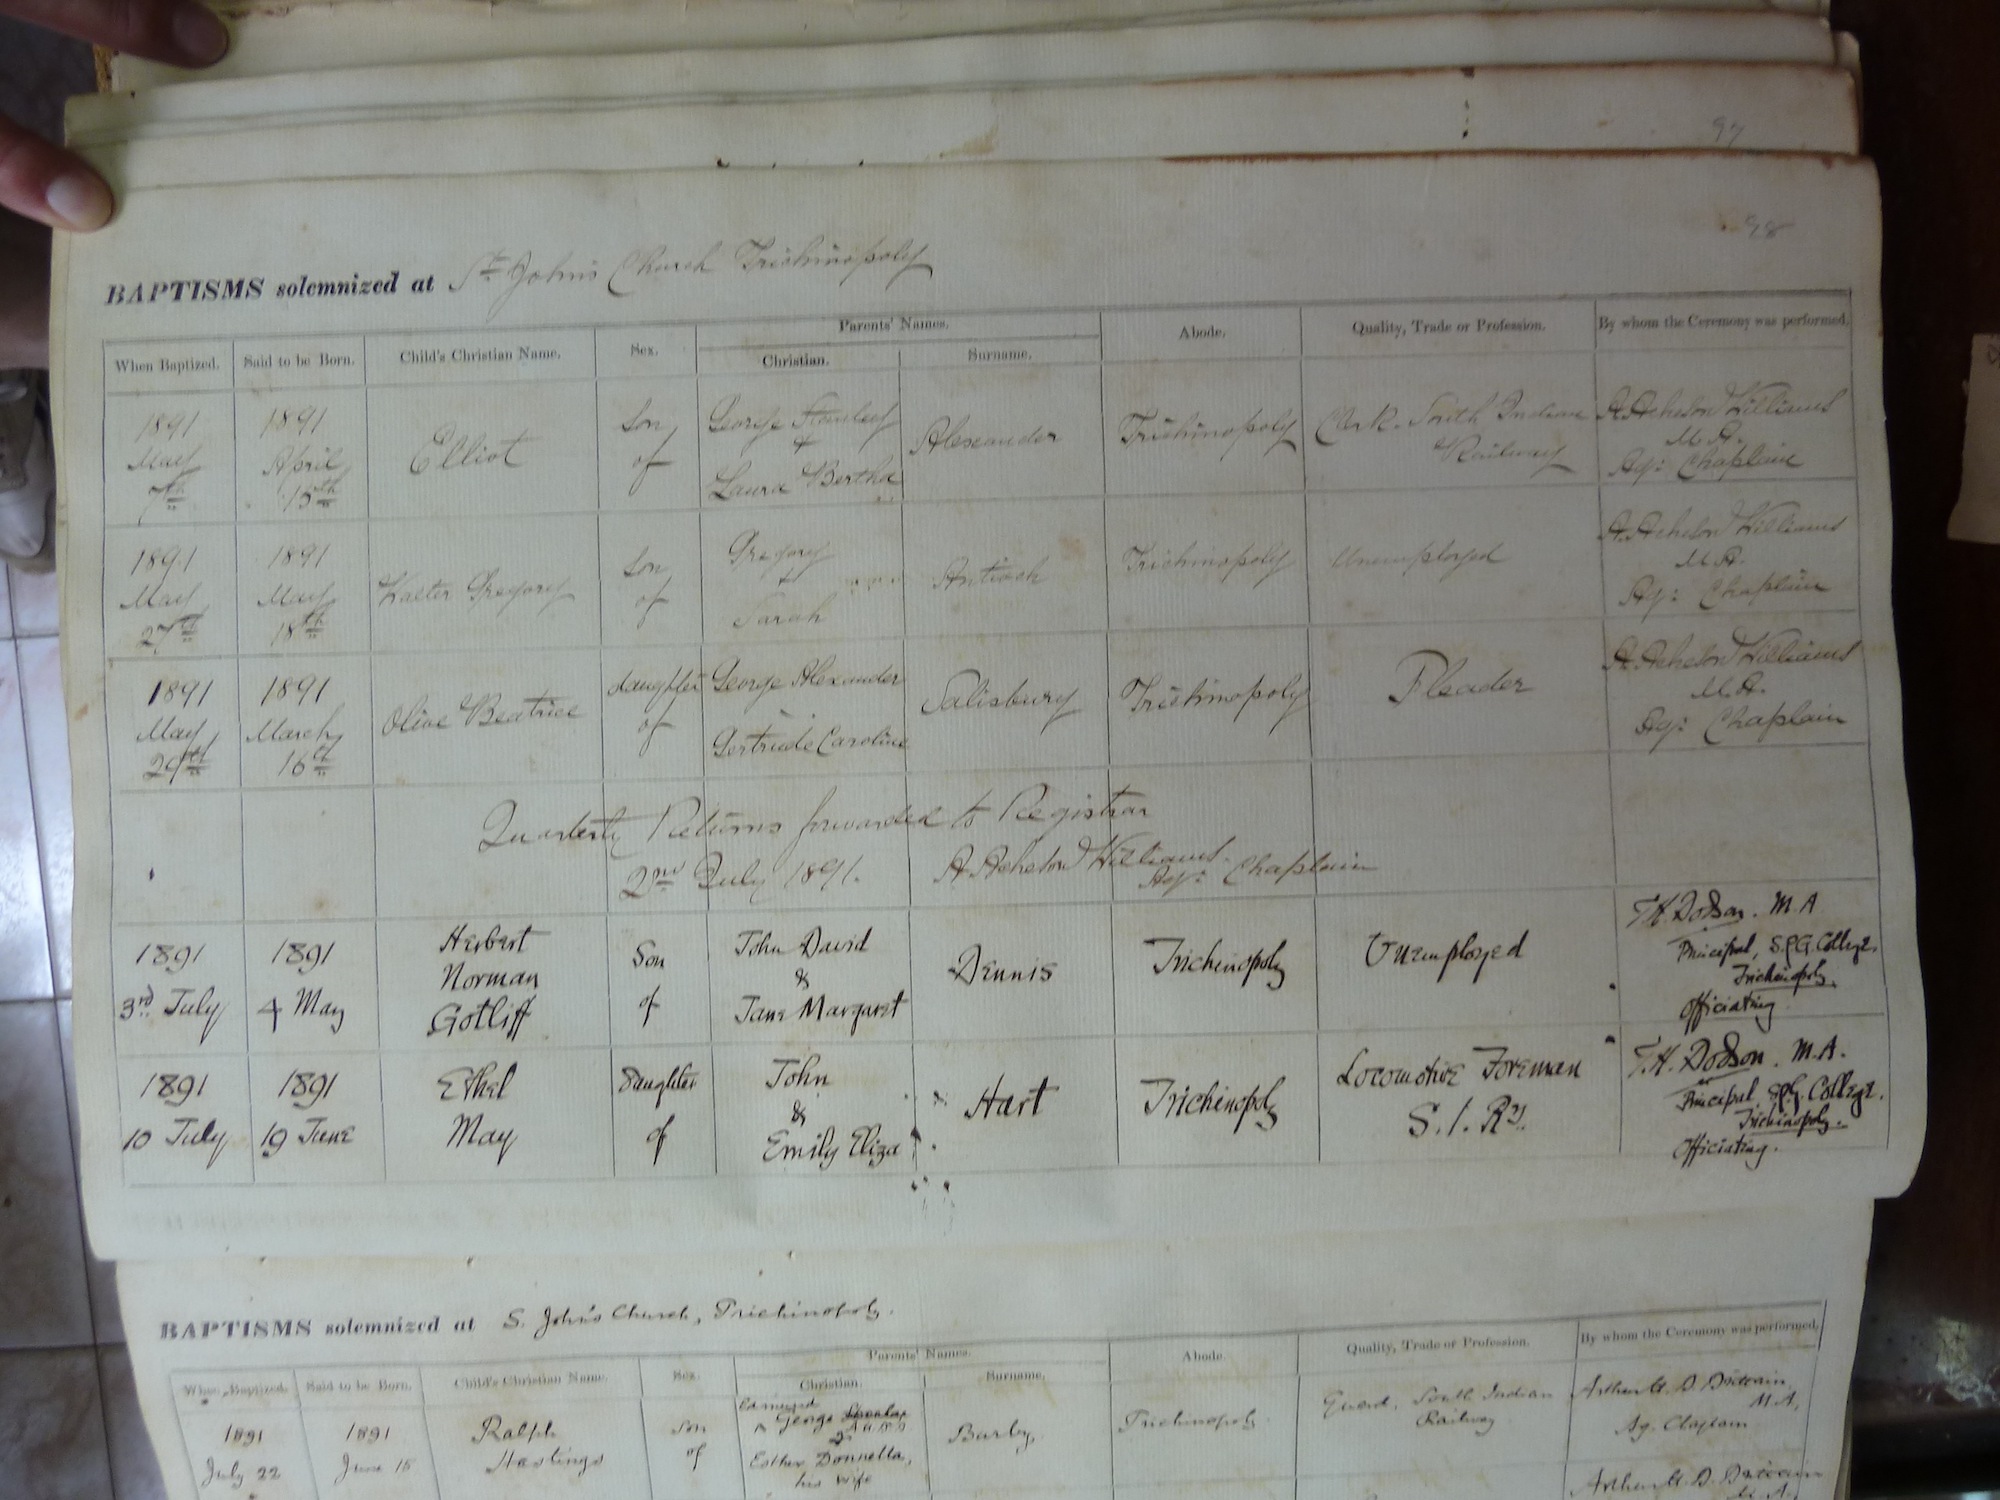 97
98
BAPTISMS solemnized at St. John's Church Trichinopoly
Parents' Names.
When Baptized. Said to be Born. Child's Christian Name. Sex. Christian. Surname. Abode. Quality, Trade or Profession. By whom the Ceremony was performed.
1891 1891 Son George Stanley Clerk. South Indian A. Acheson Williams
May April Elliot & Alexander Trichinopoly Railway M.A.
7th 15th of Laura Bertha Ag: Chaplain
1891 1891 Son Gregory A. Acheson Williams
May May Walter Gregory & Antioch Trichinopoly Unemployed M.A.
27th 18th of Sarah Ag: Chaplain
1891 1891 daughter George Alexander A. Acheson Williams
May March Olive Beatrice Salisbury Trichinopoly Pleader M.A.
29th 16th of Gertrude Caroline Ag: Chaplain
Quarterly Returns forwarded to Registrar
2nd July 1891. A. Acheson Williams.
Ag: Chaplain
1891 1891 Herbert Son John David T.H. Dodson. M.A
Norman & Dennis Trichinopoly Unemployed Principal, S.P.G. College,
Trichinopoly,
3rd July 4 May Gotliff of Jane Margaret Officiating
1891 1891 Ethel Daughter John Locomotive Foreman T.H. Dodson. M.A.
& Hart Trichinopoly Principal, S.P.G. College.
Trichinopoly.
10 July 19 June May of Emily Eliza S.I.Ry. Officiating.
BAPTISMS solemnized at S. John's Church, Trichinopoly.
Parents' Names.
When Baptized. Said to be Born. Child's Christian Name. Sex. Christian. Surname. Abode. Quality, Trade or Profession. By whom the Ceremony was performed.
Edmund
1891 1891 Ralph Son George Trichinopoly. Guard, South Indian Arthur
Railway M.A,
Ag. Chaplain
July 22 June 15 Hastings of Esther Donnella,
his wife
Arthur
M.A.